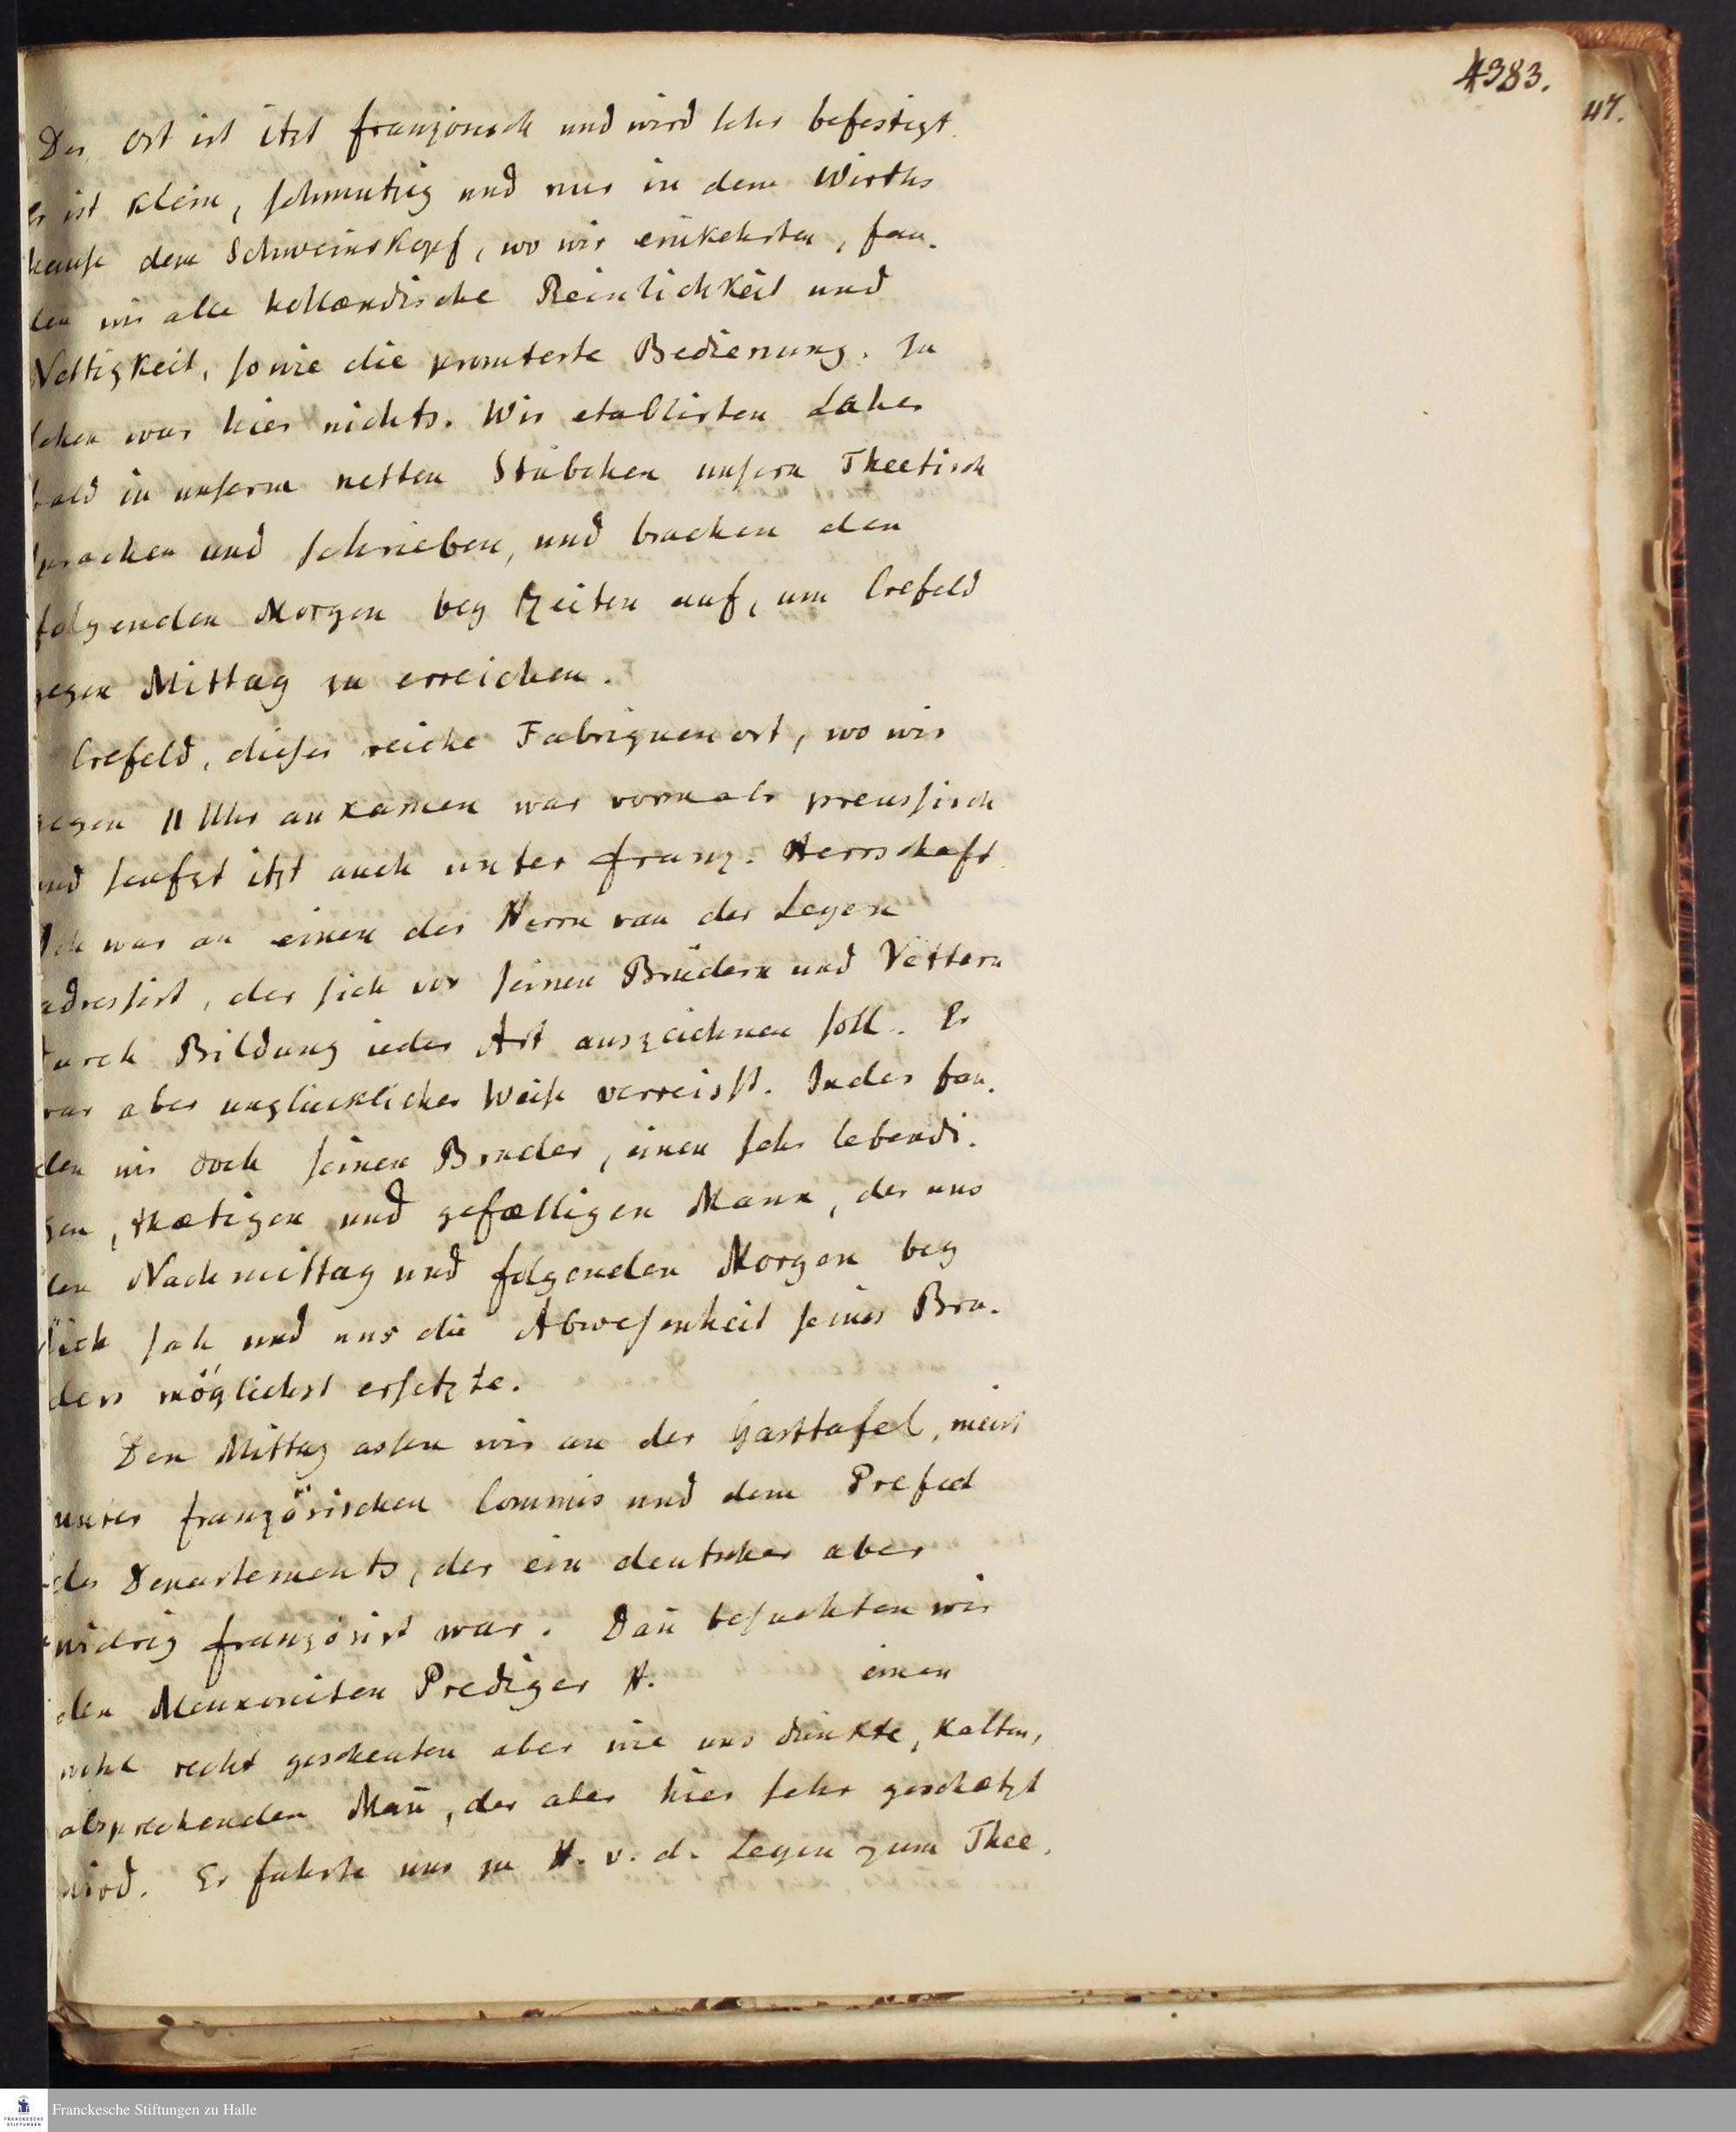 4383.
47.
Der Ort ist itzt französisch und wird sehr befestigt.
Er ist klein, schmutzig und nur in dem Wirths
hause dem Schweinskopf, wo wir einkehrten, fan-
den wir alle hollændische Reinlichkeit und
Nettigkeit, sowie die promteste Bedienung. Zu
sehen war hier nichts. Wir etablirten daher
bald in unserm netten Stübchen unsern Theetisch
sprachen und schrieben, und brachen den
folgenden Morgen bey Zeiten auf, um Crefeld
gegen Mittag zu erreichen.
Crefeld, dieser reiche Fabriquenort, wo wir
gegen 11 Uhr ankamen war vormals preussisch
und seufzt itzt auch unter franz. Herrschaft.
Ich war an einen der Herrn van der Leyen
adressirt, der sich vor seinen Brüdern und Vettern
durch Bildung ieder Art auszeichnen soll. Er
war aber unglücklicher Weise verreisst. Indes fan-
den wir doch seinen Bruder, einen sehr lebendi-
gen, thætigen und gefælligen Mann, der uns
den Nachmittag und folgenden Morgen bey
sich sah und uns die Abwesenheit seines Bru-
ders möglichst ersetzte.
Den Mittag assen wir an der Gasttafel, meist
unter französischen Commis und dem Prefect
des Departements, der ein deutscher aber
widrig französirt war. Dañ besuchten wir
den Mennoniten Prediger H. einen
wohl recht gescheuten aber wie uns dünkte, kalten,
absprechenden Mañ, der aber hier sehr geschætzt
wird. Er fuhrte uns zu H. v. d. Leyen zum Thee.
Franckesche Stiftungen zu Halle
FRANCKESCHE STIFTUNGEN